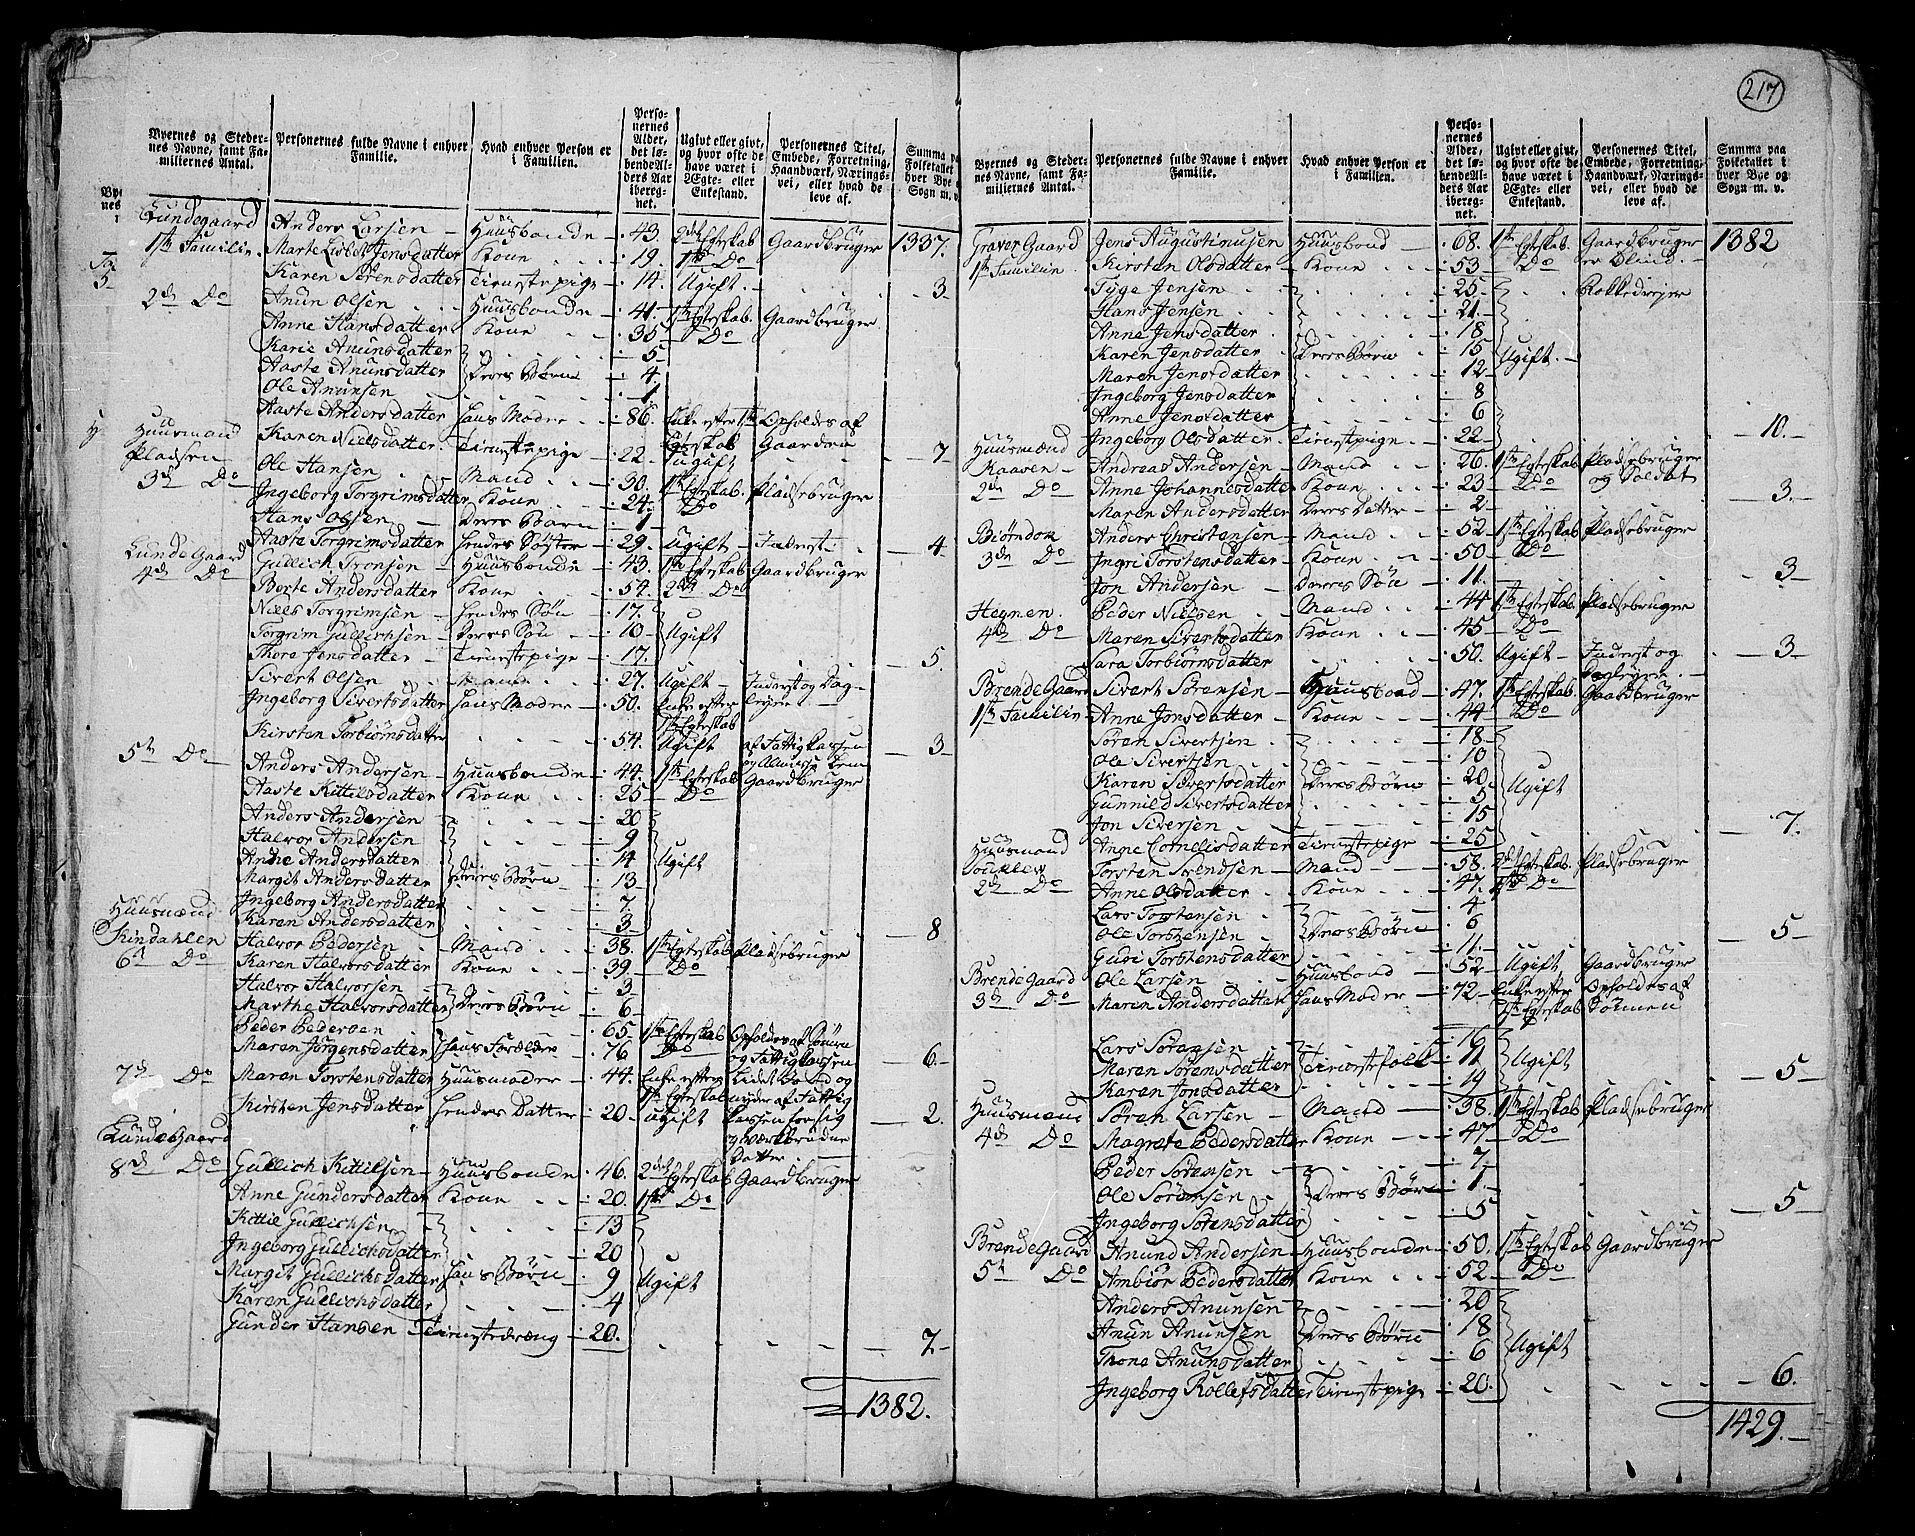 217
Byernes og Steder-
nes Navne, samt Fa-
miliernes Antal.
Personernes fulde Navne i enhver
Familie.
Hvad enhver Person er
i Familien.
Perso-
nernes
Alder,
det lø-
bende Al-
ders Aar
ibereg-
net.
Ugivt eller givt,
og hvor ofte de
have været i
Ægte- eller
Enkestand.
Personernes Titel,
Embede, Forretning,
Haandværk, Nærings-
vei, eller hvad de
leve af.
Summa paa
Folketallet i
hver Bye og
Sogn m. v.
Lundegaard Anders Larsen Huusbonde 43. 2det Egteskab Gaardbruger 1337.
1ste Familie. Marte Lisbet Jensdatter Kone 19. 1ste Do
Karen Sørensdatter Tienestepige 14. Ugift 3
2den Do Anun Olsen Huusbonde 41. 1ste Egteskab. Gaardbruger
Anne Hansdatter Kone 35 Do
Karie Anunsdatter 5
Aaste Anunsdatter Deres Børn 4.
Ole Anunsen 1
Aaste Andersdatter hans Moder 86. Enke efter 1ste Egteskab Opholdes af Gaarden
Huusmand Karen Nielsdatter Tienestepige 22. Ugift 7
Pladsen Ole Hansen Mand 30. 1ste Egteskab. Pladsebruger
3die Do Ingeborg Torgrimsdatter Kone 24. Do
Hans Olsen Deres Barn 1
Aaste Torgrimsdatter hendes Søster 29. Ugift Inderst 4
Lunde Gaard Gullich Tronsen Huusbonde 43. 1ste Egteskab Gaardbruger
4de Do Berte Andersdatter Kone 54. 2det Do
Niels Torgrimsen hendes Søn 17.
Torgrim Gullichsen Deres Søn 10 Ugift
Thore Jensdatter Tienestepige 17. 5.
Sivert Olsen Mand 27. Ugift Inderst og Dag-
lejer
Ingeborg Sivertsdatter hans Moder 50. Enke efter
1ste Egteskab
Kirsten Torbiørnsdatter 54. Ugift af Fattigkassen 3
5te Do Anders Andersen Huusbonde 44. 1ste Egteskab Gaardbruger
Aaste Kittilsdatter Kone 25 Do
Anders Andersen 20
Halvor Andersen 9
Anne Andersdatter 14 Ugift
Margit Andersdatter Deres Børn 13
Ingeborg Andersdatter 7
Huusmænd Karen Andersdatter 3 8
Halvor Pedersen Mand 38. 1ste Egteskab Pladsebruger
6te Do Karen Halvorsdatter Kone 39. Do
Halvor Halvorsen 3
Marthe Halvorsdatter Deres Børn 6
Peder Pedersen 65 1ste Egteskab Opholdes af Sønen
Maren Jørgensdatter hans Forældre 76 Do og Fattigkassen 6.
7de Do Maren Torstensdatter Huusmoder 44. Enke efter
1ste Egteskab nyder af Fattig
Kirsten Jensdatter hendes Datter 20. Ugift 2.
Datter
Lunde Gaard
8de Do Gullich Kittilsen Huusbonde 46. 2det Egteskab Gaardbruger
Anne Gundersdatter Kone 20. 1ste Do
Kittil Gullichsen 13
Ingeborg Gullichsdatter 20
Margit Gullichsdatter hans Børn 9 Ugift
Karen Gullichsdatter 4
Gunder Hansen Tienestedreng 20. 7
1382.
Byernes og Steder-
nes Navne, samt Fa-
miliernes Antal.
Personernes fulde Navne i enhver
Familie.
Hvad enhver Person er
i Familien.
Perso-
nernes
Alder,
det lø-
bende Al-
ders Aar
ibereg-
net.
Ugivt eller givt,
og hvor ofte de
have været i
Ægte- eller
Enkestand.
Personernes Titel,
Embede, Forretning,
Haandværk, Nærings-
vei, eller hvad de
leve af.
Summa paa
Folketallet i
hver Bye og
Sogn m. v.
Graver Gaard Jens Augustinusen Huusbond 68. 1ste Egteskab. Gaardbruger 1382
1ste Familie Kirsten Olsdatter Kone 53 Do er Blind.
Tyge Jensen 25 Rokkedrejer
Hans Jensen 21
Anne Jensdatter 18
Karen Jensdatter Deres Børn 15 Ugift.
Maren Jensdatter 12
Ingeborg Jensdatter 8
Anne Jensdatter 6
Huusmænd Ingeborg Olsdatter Tienestepige 22 10.
Kaasen Andreas Andersen Mand 26. 1ste Egteskab Pladsebruger
2den Do Anne Johannesdatter Kone 23 Do og Soldat
Maren Andersdatter Deres Datter 2 3.
Biørndom Anders Christensen Mand 52 1ste Egteskab Pladsebruger
3die Do Ingri Torstensdatter Kone 50 Do
Jon Andersen Deres Søn 11. 3
Heynen. Peder Nielsen Mand 44 1ste Egteskab. Pladsebruger
4de Do Maren Sivertsdatter Kone 45 Do
Sara Torbiørnsdatter 50. Ugift Inderst og 3
Daglejer
Brende Gaard Sivert Sørensen Huusbond 47. 1ste Egteskab. Gaardbruger
1ste Familie Anne Jonsdatter Kone 44 Do
Søren Sivertsen 18
Ole Sivertsen 10
Karen Sivertsdatter Deres Børn 20 Ugift
Gunnild Sivertsdatter 5
Jon Siversen 15
Anne Cornelisdatter Tienestepige 25 7.
Huusmand Torsten Svendsen Mand 58. 2det Egteskab. Pladsebruger
2den Do Anne Olsdatter Kone 47. 1ste Do
Lars Torstensen 4
Ole Torstensen Deres Børn 6
Gudi Torstensdatter 11. 5
Brende Gaard Ole Larsen Huusbond 52 Ugift Gaardbruger
3die Do Maren Andersdatter Hans Moder 72 Enke efter Opholdes af
1ste Egteskab Sønnen
Lars Sørensen 16
Maren Sørensdatter Tienestfolk 11 Ugift
Karen Jonsdatter 19 5
Huusmænd Søren Larsen Mand 38. 1ste Egteskab Pladsebruger
4de Do Magrete Pedersdatter Kone 47 Do
Peder Sørensen 7
Ole Sørensen Deres Børn 1.
Ingeborg Sørensdatter 5 5
Brende Gaard Anund Andersen Huusbonde 50. 1ste Egteskab Gaardbruger
5te Do Ambiør Pedersdatter Kone 52. Do
Anders Anunsen 20
Anun Anunsen Deres Børn 18
Thone Anunsdatter 6 Ugift
Ingeborg Rollefsdatter Tienestepige 20 6.
1429.